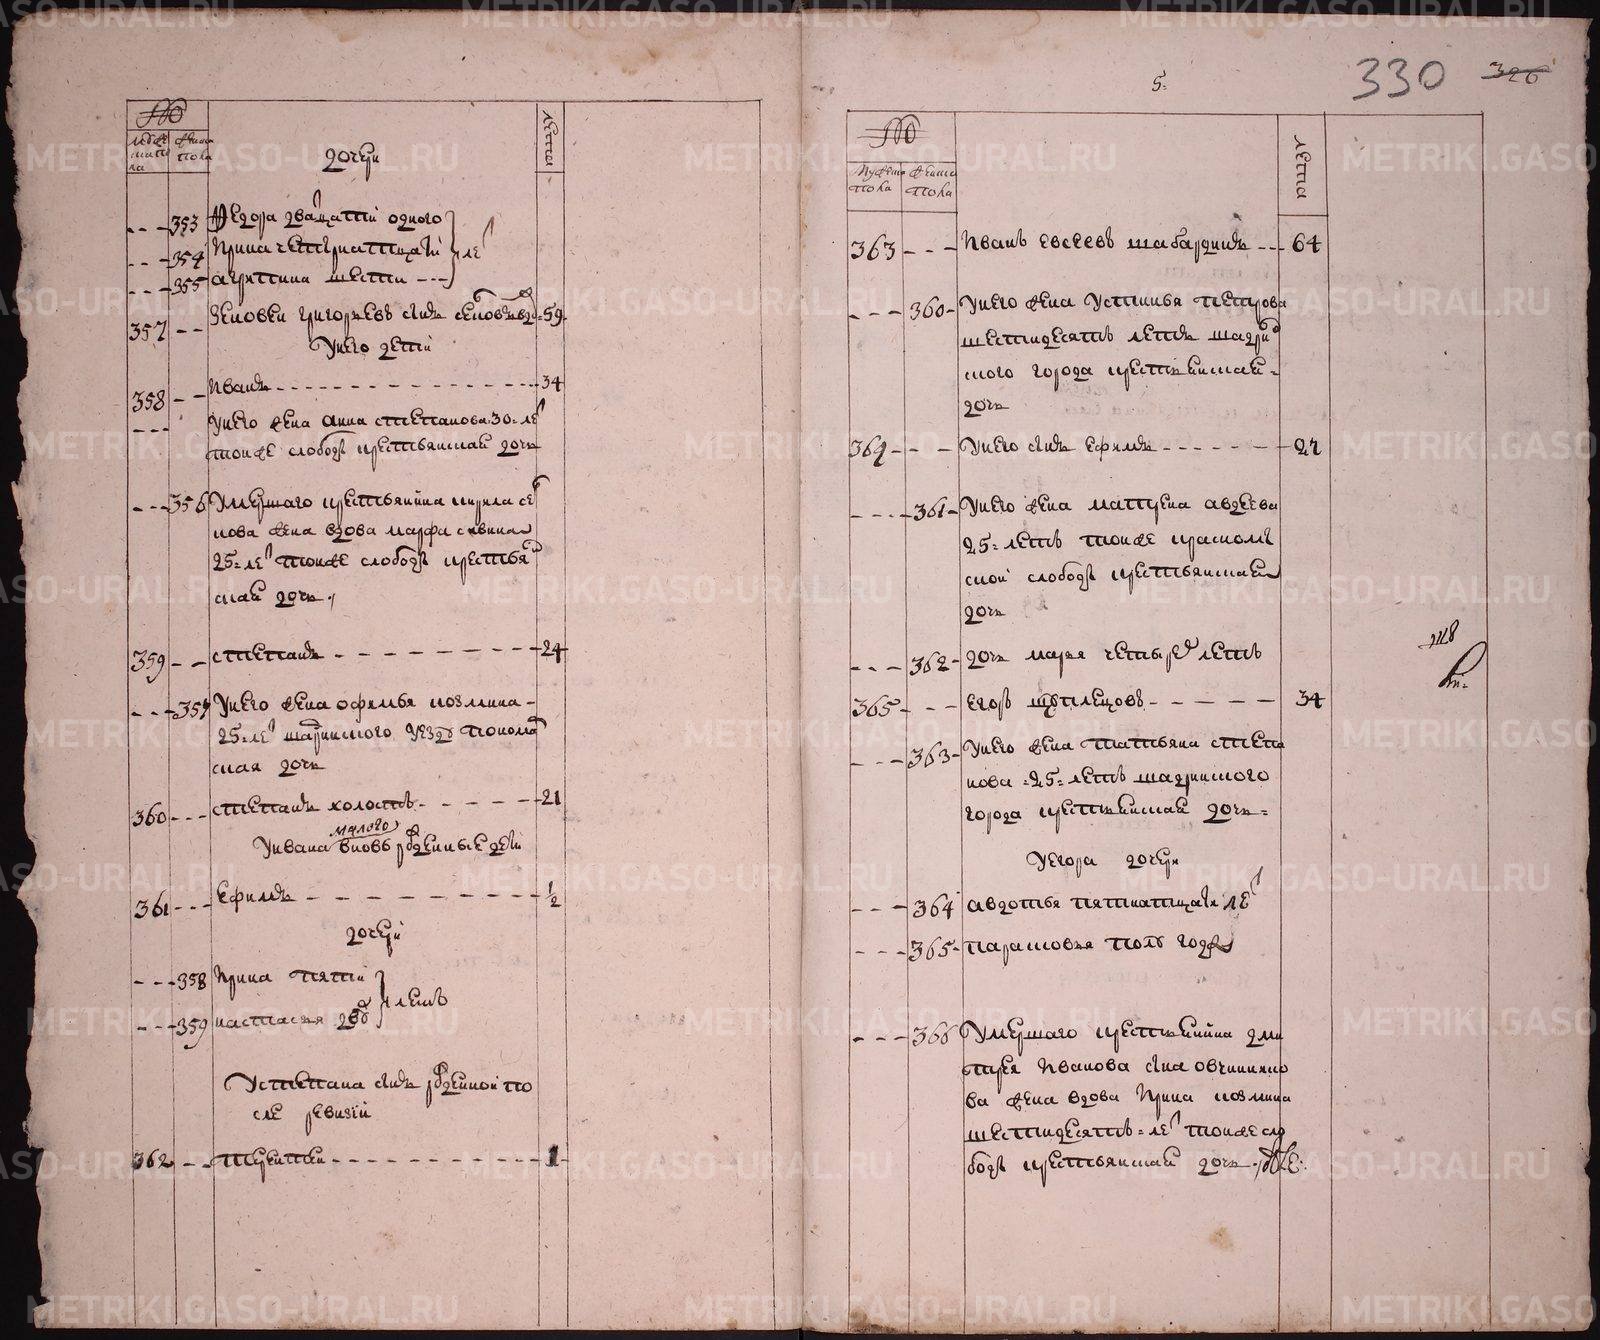 №
мужеска пола
женска пола
лета
дочери
353 Федора дватцати одного
354 Ирина четырнатцати лет
355 агрипина шести
357 Зеновеи григорьевъ снъ 59
У него дети
358 Иванъ 34
У него жена анна степанова 30 лет
тоиже слободы крестьянская дочь
356 Умершаго крестьянина кирила се
нова жена вдова марфа
25 лет тоиже слободы крестьян
ская дочь
359 степанъ 24
357 У него жена офимья козмина
25 лет шадринского уезду понома
ская дочь
360 степанъ холостъ 21
малого
У ивана вновь рожденные дети
361 Ефимъ ½
дочери
358 Ирина пяти
359 настасья дву летъ
У степана снъ рожденной по
сле ревизии
362 терентеи 1
5
330 326
№
мужеска пола
женска пола
лета
363 Иванъ евсеевъ шабардинъ 64
360 У него жена Устинья петрова
шестидесятъ летъ шадрин
ского города крестьянская
дочь
364 У него снъ ефимъ 27
361 У него жена матрена авдеева
25 летъ тоиже красномы
ской слободы крестьянская
дочь
362 дочь марья четырех летъ
365 Егоръ 34
363 У него жена татьяна степа
нова 25 летъ шадринского
города крестьянская дочь
У егора дочери
364 авдотья пятнатцати лет
365 парасковья полъ году
366 Умершаго крестьянина дми
трея Иванова сна овчинико
ва жена вдова Ирина козмина
шестидесятъ лет тоиже сло
боды крестьянская дочь
METRIKI.GASO-URAL.RU